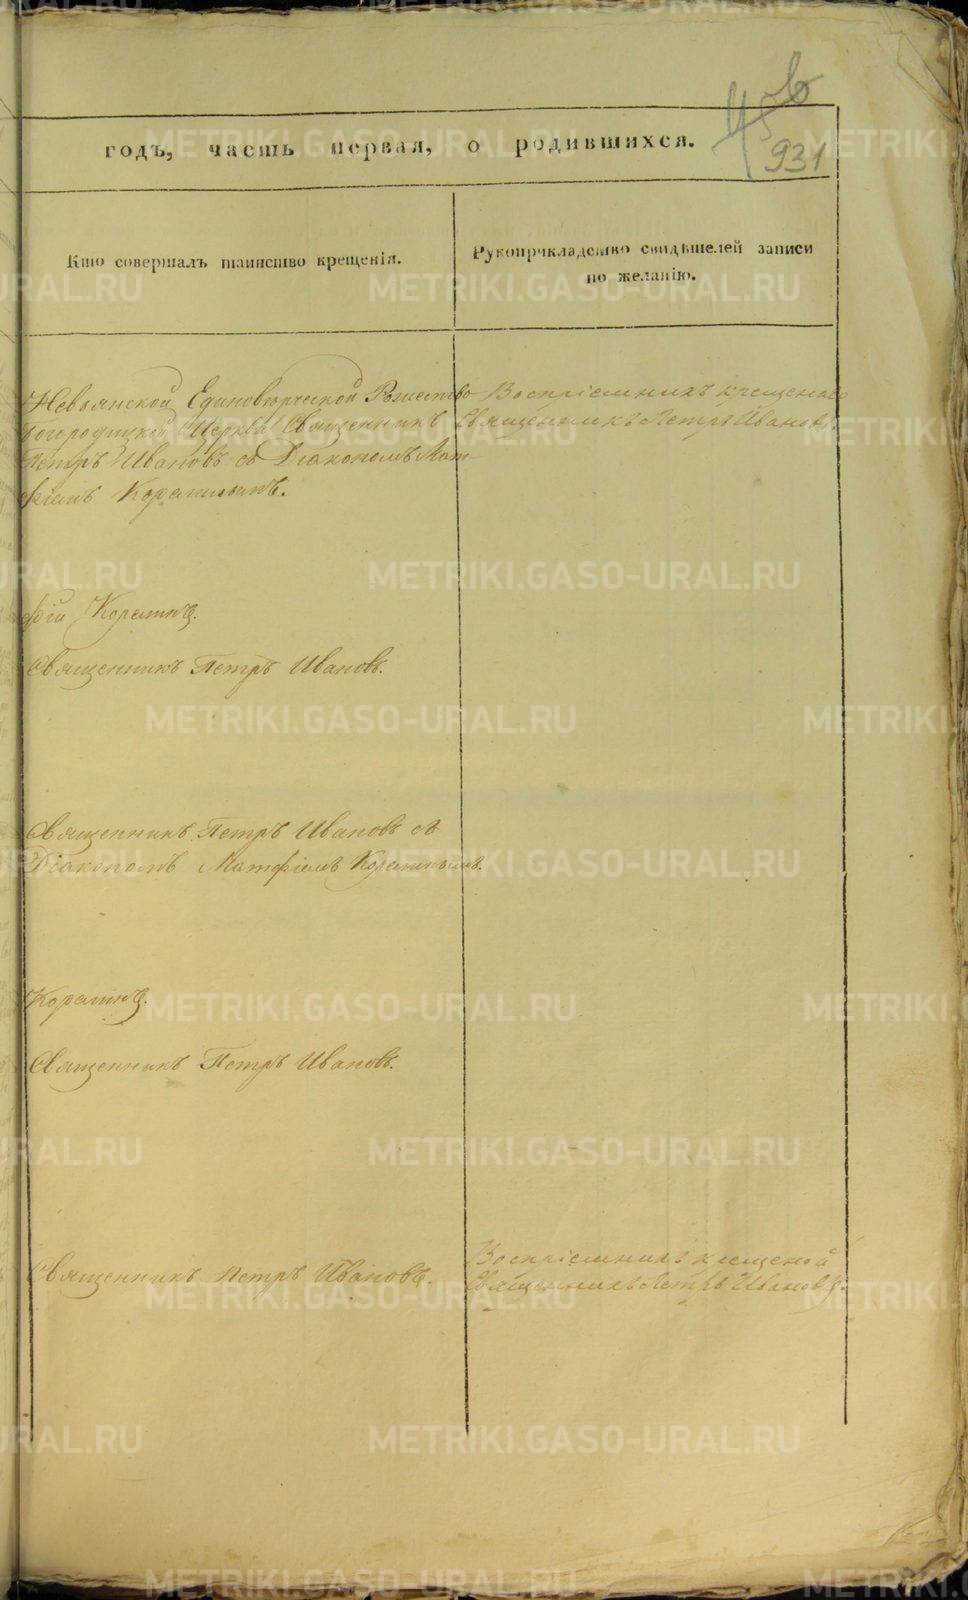 931
годъ, часть первая, о родившихся.
Кто совершалъ таинство крещенія.
Рукоприкладство свидѣтелей записи
по желанію.
Невьянской Единовѣрческой Рожество
Богородицкой Церкви Священникъ
Петръ Ивановъ съ Діакономъ Мат
фіемъ
Воспріемникъ крещенаго
Священникъ Петръ Ивановъ
Священникъ Петръ Ивановъ.
Священникъ Петръ Ивановъ съ
Діакономъ Матфіемъ
Священникъ Петръ Ивановъ.
Священникъ Петръ Ивановъ.
Воспріемникъ крещеной
Священникъ Петръ Ивановъ.
METRIKI.GASO-URAL.RU